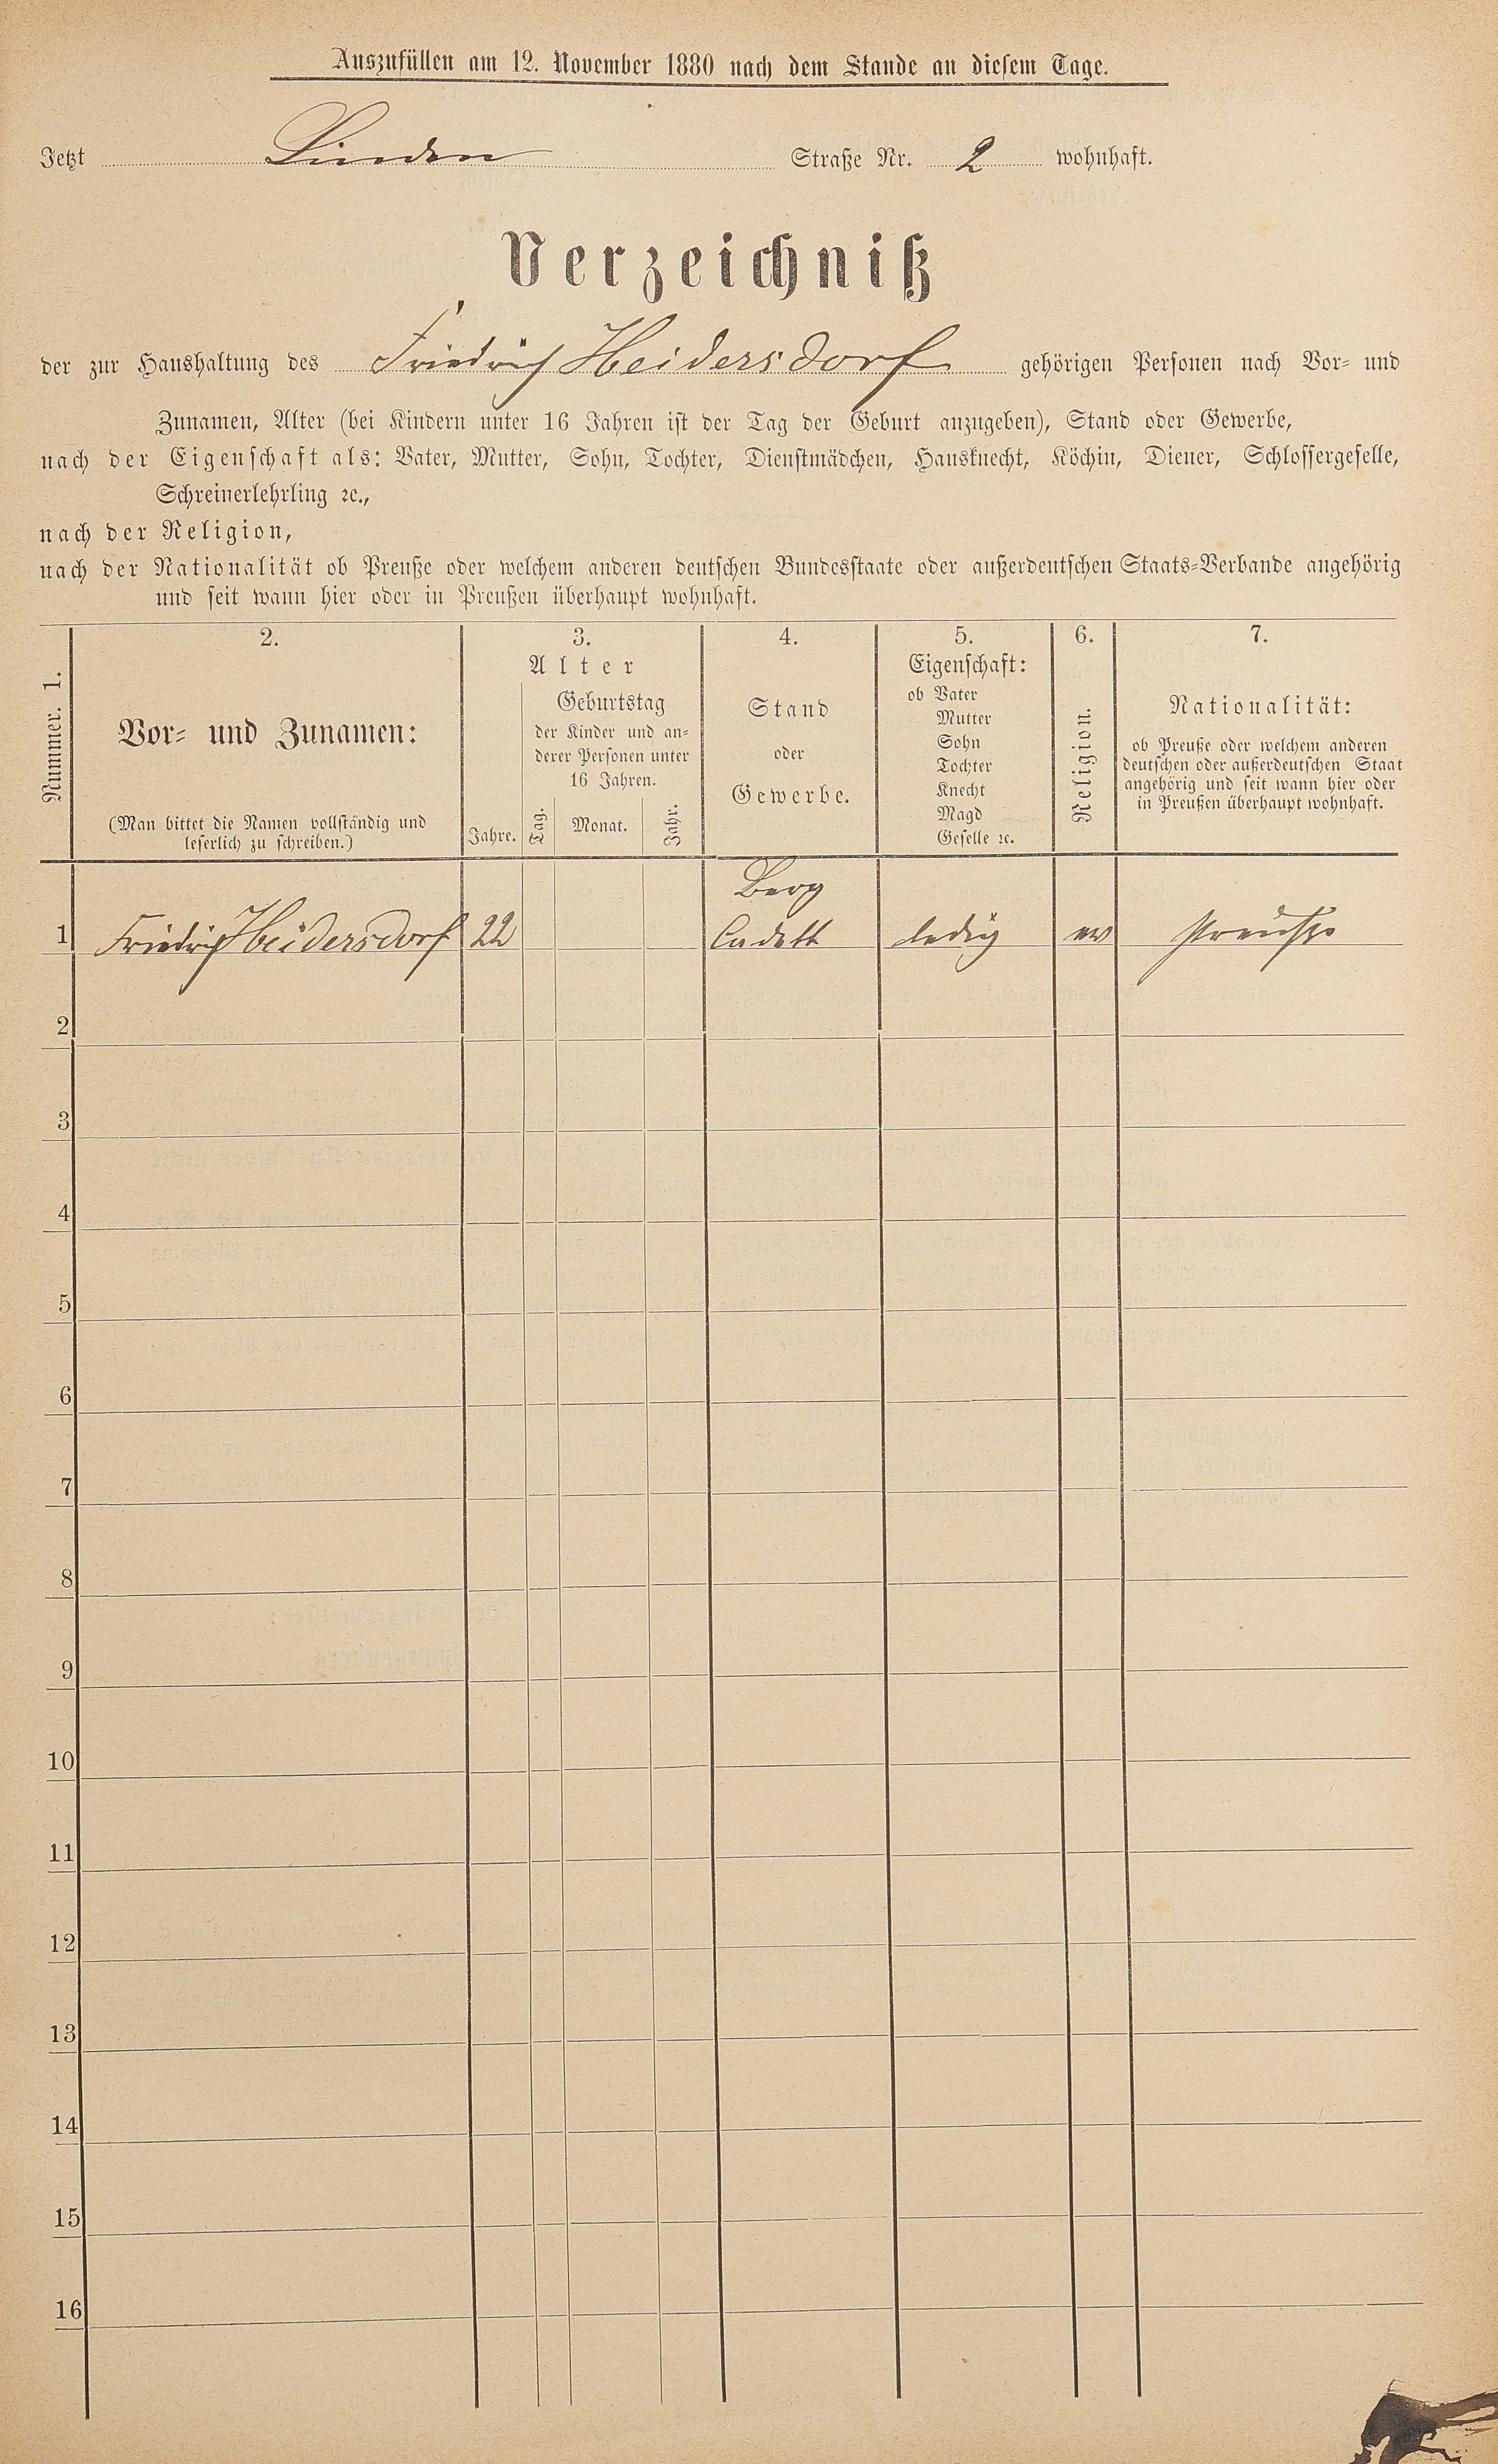 Auszufüllen am 12. November 1880 nach dem Stande an diesem Tage.
Jetzt Linden Straße Nr. 2 wohnhaft.
Verzeichniß
der zur Haushaltung des Friedrich Heidersdorf gehörigen Personen nach Vor- und
Zunamen, Alter (bei Kindern unter 16 Jahren ist der Tag der Geburt anzugeben), Stand oder Gewerbe,
nach der Eigenschaft als: Vater, Mutter, Sohn, Tochter, Dienstmädchen, Hausknecht, Köchin, Diener, Schlossergeselle,
Schreinerlehrling ꝛc.,
nach der Religion,
nach der Nationalität ob Preuße oder welchem anderen deutschen Bundesstaate oder außerdeutschen Staats-Verbande angehörig
und seit wann hier oder in Preußen überhaupt wohnhaft.
Nummer. 1.
2.
Vor- und Zunamen:
(Man bittet die Namen vollständig und
leserlich zu schreiben.)
3.
Alter
Jahre.
Geburtstag
der Kinder und an-
derer Personen unter
16 Jahren.
Tag.
Monat.
Jahr.
4.
Stand
oder
Gewerbe.
5.
Eigenschaft:
ob Vater
Mutter
Sohn
Tochter
Knecht
Magd
Geselle ꝛc.
6.
Religion.
7.
Nationalität:
ob Preuße oder welchem anderen
deutschen oder außerdeutschen Staat
angehörig und seit wann hier oder
in Preußen überhaupt wohnhaft.
Berg
1 Friedrich Heidersdorf 22 Cadett ledig ev Preuße
2
3
4
5
6
7
8
9
10
11
12
13
14
15
16